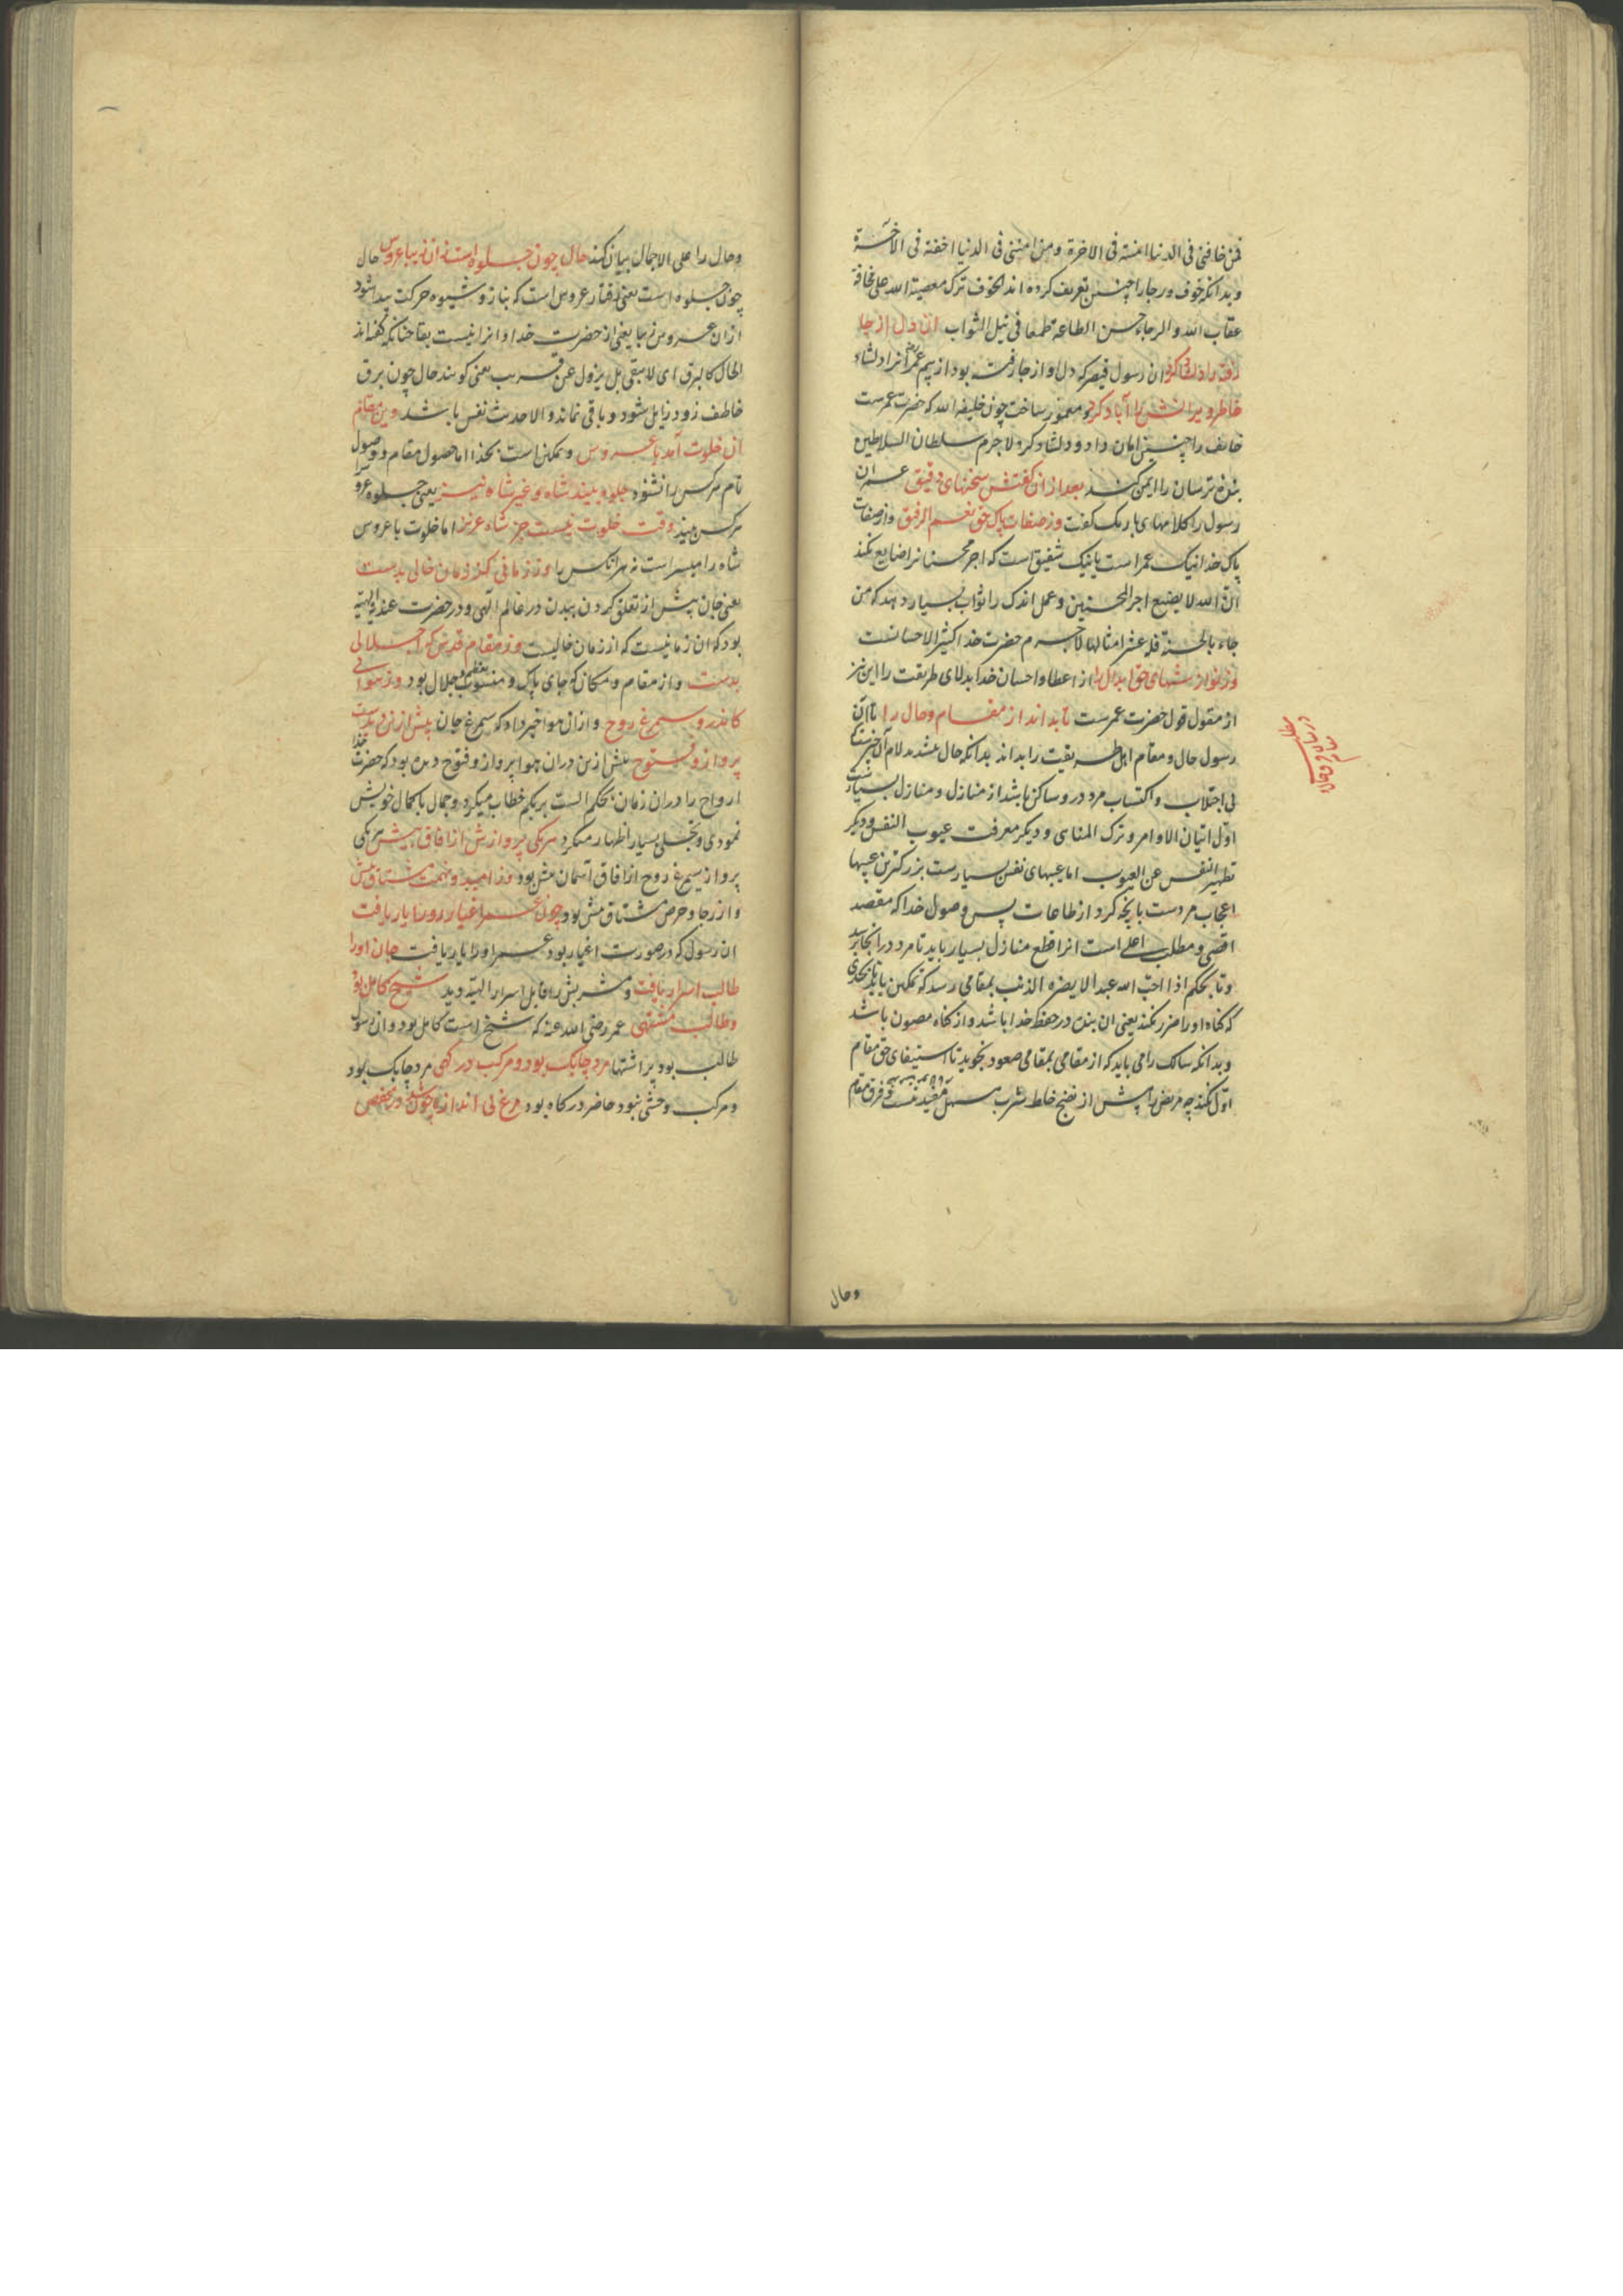 فمن خافنی فی الدنیا امنته فی الاخرة ومن امننی فی الدنیا اخفته فی الاخرة
و بدانکه خوف و رجا را چنین تعریف کرده اند الخوف ترک معصیة الله علی مخافة
عقاب الله و الرجاء حسن الطاعة طمعا فی نیل الثواب آن دل از جا
رفته را دلشاد کرد ان رسول قیصر که دل او از جا رفته بود از بیم عمر انرا دلشاد
خاطر ویرانش را آباد کرد و معمور ساخت چون خلیفه الله که حضرت عمرست
خایف را چنین امان داد و دلشاد کرد لاجرم سلطان السلاطین
بنده ترسان را ایمن کند بعد ازان کفتش سخنهای دقیق عمر ان
رسول را کلامهای باریک کفت وز صفات پاک حق نعم الرفیق و از صفات
پاک خدا نیک عمر است یا نیک شفیق است که اجر محسنانرا ضایع نکند
ان الله لا یضیع اجر المحسنین و عمل اندک را ثواب بسیار دهد که من
جاء بالحسنة فله عشر امثالها لاجرم حضرت خدا کثیر الاحسانست
وز نوازشهای حق ابدال را از اعطا و احسان خدا بدلای طریقت را این نیز
از مقول قول حضرت عمرست تا بداند از مقام و حال را تا آن
رسول حال و مقام اهل طریقت را بداند بدانکه حال بتشدید لام آن چیزیست که
بی اجتلاب و اکتساب مرد درو ساکن باشد از منازل و منازل بسیارست
اول اتیان الاوامر و ترک المناهی و دیکر معرفت عیوب النفس و دیکر
تطهیر النفس عن العیوب اما عیبهای نفس بسیارست بزرکترین عیبها
اعجاب مردست بانچه کرد از طاعات پس وصول خدا که مقصد
اقصی و مطلب اعلی است انرا قطع منازل بسیار باید تا مرد در انجا رسد
و تا بحکم اذا احب الله عبدا لا یضره الذنب بمقامی رسد که تمکین یابد بحدی
که کناه او را ضرر نکند یعنی ان بنده در حفظ خدا باشد و از کناه مصون باشد
و بدانکه سالک را می باید که از مقامی بمقامی صعود نجوید تا استیفای حق مقام
اول نکند چه مریض را پیش از نضج خلط شرب مسهل مفید نیست و فرق مقام
مطلب
در بیان فرق
مقام و حال
وحال
وحال را علی الاجمال بیان کند حال چون جلوه است زان زیبا عروس حال
چون جلوه است یعنی رفتار عروس است که بناز و شیوه حرکت پیدا شود
از ان عروس زیبا یعنی از حضرت خدا و انرا نیست بقا چنانکه کفته اند
الحال کالبرق ای لا یبقی بل یزول عن قریب یعنی کویند حال چون برق
خاطف زود زایل شود و باقی نماند و الا حدیث نفس باشد وین مقام
آن خلوت آمد با عروس و تمکن است بخدا اما حصول مقام و وصول
تام هر کس را نشود جلوه بیند شاه و غیر شاه نیز یعنی جلوه عروس را
هر کس بیند وقت خلوت نیست جز شاه عزیز اما خلوت با عروس
شاه را میسر است نه هر انکس را وز زمانی کز زمان خالی بدست
یعنی جان پیش از تعلق کردن ببدن در عالم الهی و در حضرت عندیه الهیه
بود که ان زمانیست که از زمان خالیست وز مقام قدس که اجلالی
بدست و از مقام و مکان که جای پاک و منسوب بتعظیم و جلال بود وز هوایی
کاندرو سیمرغ روح و ازان هوا خبر داد که سیمرغ جان پیش ازین دیدست
پرواز و فتوح پیش ازین دران هوا پرواز و فتوح دیده بود که حضرت خدا
ارواح را دران زمان بحکم الست بربکم خطاب میکرد و جمال با کمال خویش
نمودی و تجلی بسیار اظهار میکرد هر یکی پروازش از افاق بیش هر یکی
پرواز سیمرغ روح از افاق اسمان بیش بود وز امید و نهمت مشتاق بیش
و از رجا و حرص مشتاق بیش بود چون عمر اغیار رو را یار یافت
ان رسول که در صورت اغیار بود عمر او را یار یافت جان اورا
طالب اسرار یافت و مشربش را قابل اسرار الهیه دید شیخ کامل بود
وطالب مشتهی عمر رضی الله عنه که شیخ است کامل بود و ان رسول
طالب بود پر اشتها مرد چابک بود و مرکب درکهی مرد چابک بود
و مرکب وحشی نبود حاضر درکاه بود مرغ بی اندازه چون شد در قفص